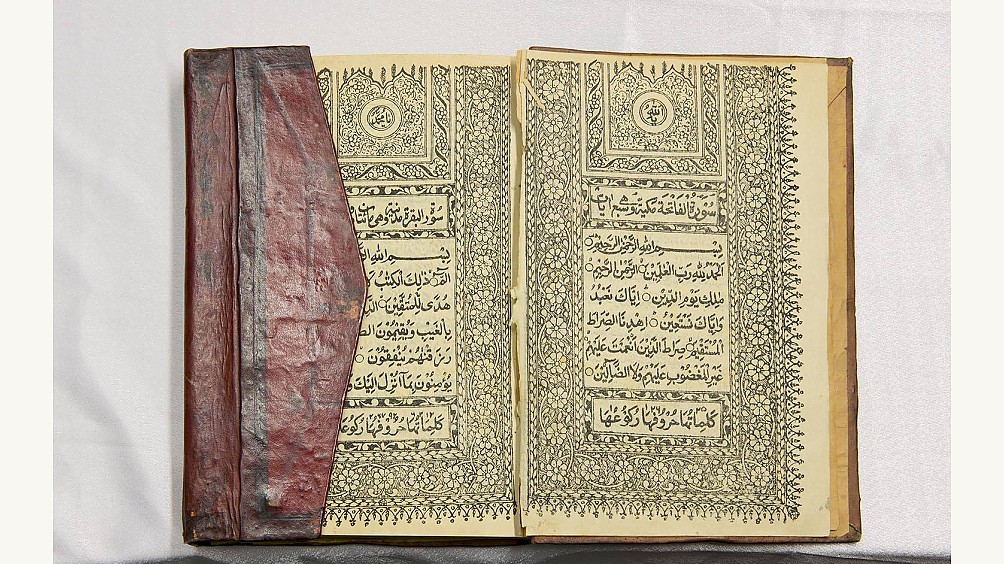 يا الله
سُوْرَةُ الْفَاتِحَةِ مَكِّيَّةٌ وَهِيَ سَبْعُ اٰيَاتٍ
بِسْمِ اللّٰهِ الرَّحْمٰنِ الرَّحِيْمِ
اَلْحَمْدُ لِلّٰهِ رَبِّ الْعٰلَمِيْنَ ۝ الرَّحْمٰنِ الرَّحِيْمِ ۝
مٰلِكِ يَوْمِ الدِّيْنِ ۝ اِيَّاكَ نَعْبُدُ
وَاِيَّاكَ نَسْتَعِيْنُ ۝ اِهْدِنَا الصِّرَاطَ
الْمُسْتَقِيْمَ ۝ صِرَاطَ الَّذِيْنَ اَنْعَمْتَ عَلَيْهِمْ
غَيْرِ الْمَغْضُوْبِ عَلَيْهِمْ وَلَا الضَّآلِّيْنَ ۝
كلماتها حروفها ركوعها
يا محمد
سُوْرَةُ الْبَقَرَةِ مَدَنِيَّةٌ وَهِيَ مِائَتَانِ
بِسْمِ اللّٰهِ
الٓمّٓ ۝ ذٰلِكَ الْكِتٰبُ
هُدًى لِّلْمُتَّقِيْنَ ۝
بِالْغَيْبِ وَيُقِيْمُوْنَ
رَزَقْنٰهُمْ يُنْفِقُوْنَ ۝
يُؤْمِنُوْنَ بِمَآ اُنْزِلَ اِلَيْكَ
كلماتها حروفها